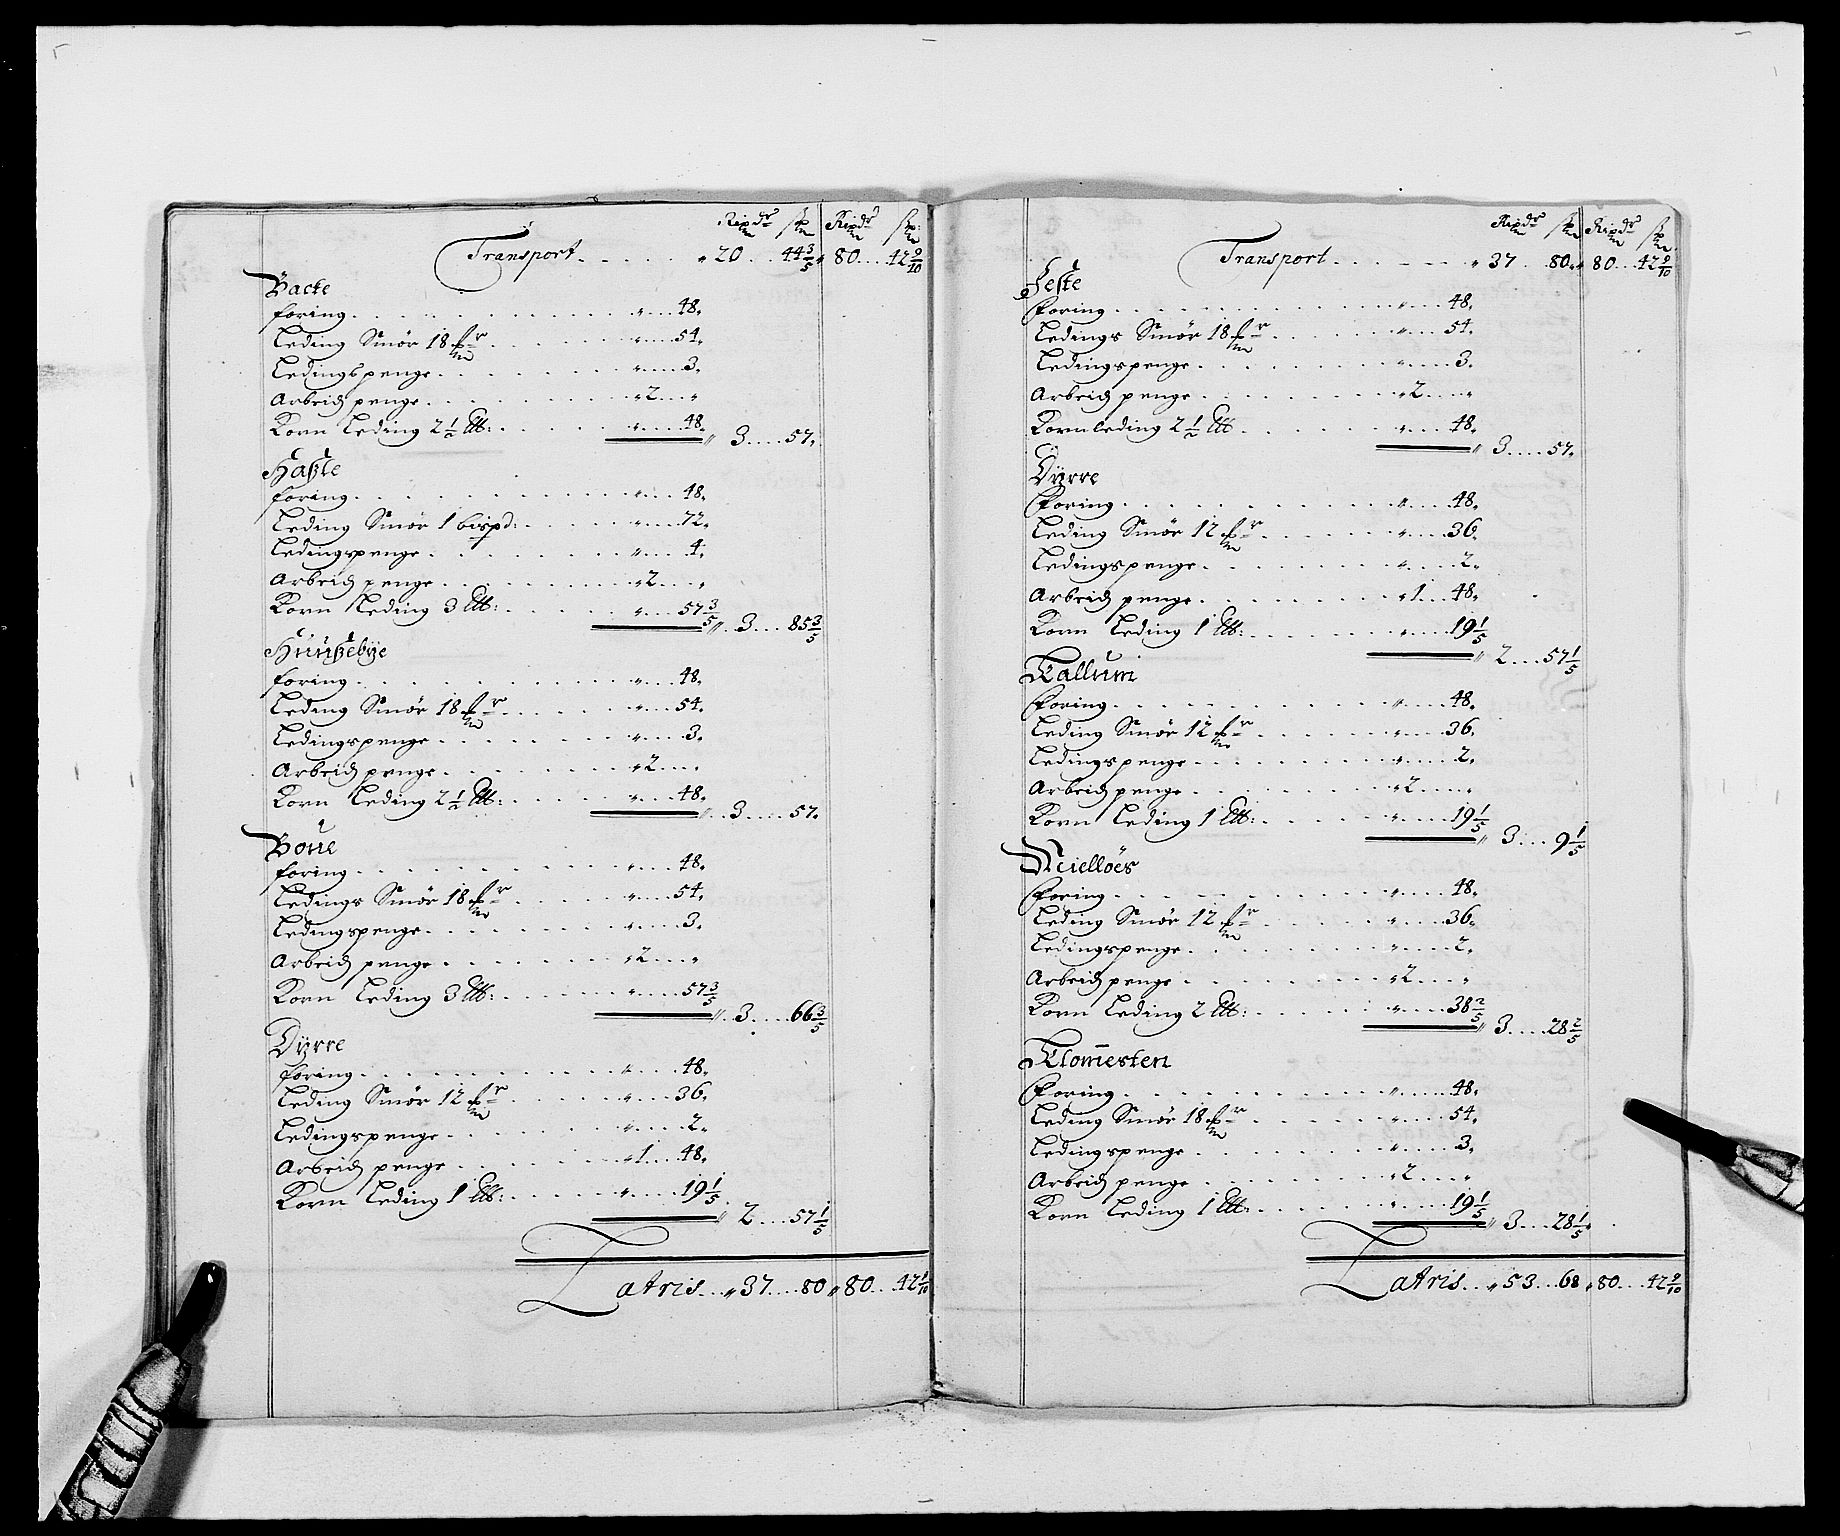 Rixdr sk Rixdr sk
Transport . . . . . " 20 . . . 44 3/5 " 80 . . . 42 9/10
Backe
foring . . . " . . . . 48 "
Leding Smör 18 " . . . . 54 "
Ledingspenge . . . " . . . . 3 "
Arbeids penge . . . " 2 . . . "
Korn Leding 2 1/2 . . . " . . . . 48 " " 3 . . . . 57 "
Haßle
foring . . . " . . . . 48 "
Leding Smör 1 bispd: . . . " . . . . 72 "
Ledingspenge . . . " . . . . 4 "
Arbeids penge . . . " 2 . . . "
Korn Leding 3 . . . " . . . . 57 3/5 " 3 . . . . 85 3/5
Hunßebye
foring . . . " . . . . 48 "
Leding Smör 18 . . . " . . . . 54 "
Ledingspenge . . . " . . . . 3 "
Arbeids penge . . . " 2 . . . "
Korn Leding 2 1/2 . . . " . . . . 48 " " 3 . . . . 57 "
Boue
foring . . . " . . . . 48 "
Ledings Smör 18 . . . " . . . . 54 "
Ledingspenge . . . " . . . . 3 "
Arbeids penge . . . " 2 . . . "
Korn Leding 3 . . . " . . . . 57 3/5 " 3 . . . . 66 3/5
Dyrre
foring . . . " . . . . 48 "
Leding Smör 12 . . . " . . . . 36 "
Ledingspenge . . . " . . . . 2 "
Arbeids penge . . . " 1 . . . 48 "
Korn Leding 1 . . . " . . . . 19 1/5 " 2 . . . . 57 1/5
Latris . . . " 37 . . . . 80 " 80 . . . 42 9/10
Rixdr sk Rixdr sk
Transport . . . . . " 37 . . . 80 " " 80 . . . 42 9/10
Jeste
foring . . . " . . . . 48 "
Ledings Smör 18 . . . " . . . . 54 "
Ledingspenge . . . " . . . . 3 "
Arbeids penge . . . " 2 . . . "
Kornleding 2 1/2 . . . " . . . . 48 " " 3 . . . . 57 "
Dyrre
foring . . . " . . . . 48 "
Leding Smör 12 . . . " . . . . 36 "
Ledingspenge . . . " . . . . 2 "
Arbeids penge . . . " 1 . . . 48 "
Korn Leding 1 . . . " . . . . 19 1/5 " 2 . . . . 57 1/5
Kallum
foring . . . " . . . . 48 "
Leding Smör 12 . . . " . . . . 36 "
Ledingspenge . . . " . . . . 2 "
Arbeids penge . . . " 2 . . . "
Korn Leding 1 . . . " . . . . 19 1/5 " 3 . . . . 9 1/5
Miellöes
foring . . . " . . . . 48 "
Leding Smör 12 . . . " . . . . 36 "
Ledingspenge . . . " . . . . 2 "
Arbeids penge . . . " 2 . . . "
Korn Leding 2 . . . " . . . . 38 2/5 " 3 . . . . 28 2/5
Klom̄esten
foring . . . " . . . . 48 "
Leding Smör 18 . . . " . . . . 54 "
Ledingspenge . . . " . . . . 3 "
Arbeids penge . . . " 2 . . . "
Korn Leding 1 . . . " . . . . 19 1/5 " 3 . . . 28 1/5 "
Latris . . . " 53 . . . 68 " 80 . . . 42 9/10